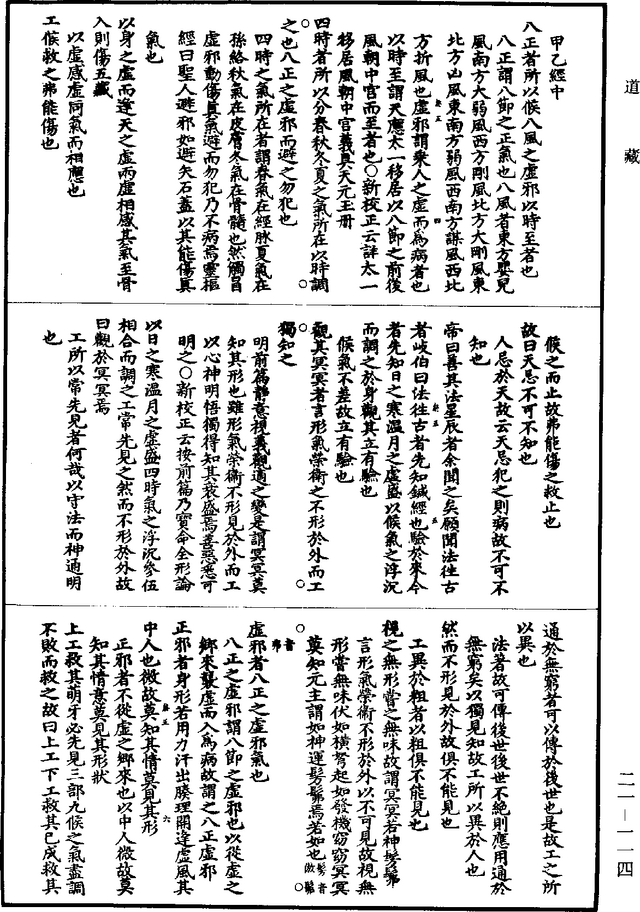 道藏
甲乙經中
八正者所以候八風之虛邪以時至者也
八正謂八節之正氣也八風者東方嬰兒
風南方大弱風西方剛風北方大剛風東
北方凶風東南方弱風西南方謀風西北
方折風也虛邪謂乘人之虛而為病者也
以時至謂天應太一移居以八節之前後
風朝中宮而至者也○新校正云詳太一
移居風朝中宮義具天元玉冊
四時者所以分春秋冬夏之氣所在以時調
之也八正之虛邪而避之勿犯也
四時之氣所在者謂春氣在經脉夏氣在
孫絡秋氣在皮膚冬氣在骨髓也然觸冒
虛邪動傷真氣避而勿犯乃不病焉靈樞
經曰聖人避邪如避矢石蓋以其能傷真
氣也
以身之虛而逢天之虛兩虛相感其氣至骨
入則傷五藏
以虛感虛同氣而相應也
工候救之弗能傷也
候之而止故弗能傷之救止也
故曰天忌不可不知也
人忌於天故云天忌犯之則病故不可不
知也
帝曰善其法星辰者余聞之矣願聞法往古
者岐伯曰法往古者先知鍼經也驗於來今
者先知日之寒溫月之虛盛以候氣之浮沉
而調之於身觀其立有驗也
候氣不差故立有驗也
觀其冥冥者言形氣榮衛之不形於外而工
獨知之
明前篇靜意視義觀適之變是謂冥冥莫
知其形也雖形氣榮衛不形見於外而工
以心神明悟獨得知其衰盛焉善惡悉可
明之○新校正云按前篇乃寶命全形論
以日之寒溫月之虛盛四時氣之浮沉參伍
相合而調之工常先見之然而不形於外故
曰觀於冥冥焉
工所以常先見者何哉以守法而神通明
也
通於無窮者可以傳於後世也是故工之所
以異也
法著故可傳後世後世不絕則應用通於
無窮矣以獨見知故工所以異於人也
然而不形見於外故俱不能見也
工異於粗者以粗俱不能見也
視之無形嘗之無味故謂冥冥若神髣髴
言形氣榮衛不形於外以不可見故視無
形嘗無味伏如橫弩起如發機窈窈冥冥
莫知元主謂如神運髣髴焉若如也
虛邪者八正之虛邪氣也
八正之虛邪謂八節之虛邪也以從虛之
鄉來襲虛而入為病故謂之八正虛邪
正邪者身形若用力汗出腠理開逢虛風其
中人也微故莫知其情莫見其形
正邪者不從虛之鄉來也以中人微故莫
知其情意莫見其形狀
上工救其萌牙必先見三部九候之氣盡調
不敗而救之故曰上工下工救其已成救其
二一—一一四